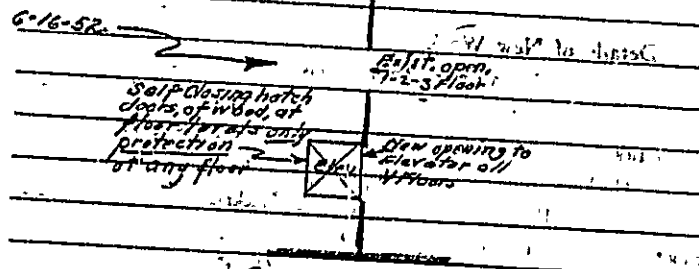 6-16-52.
Exist. open.
1-2-3 Floor
Self-Closing hatch
doors, of wood, at
floor levels only
protection
at any floor
Elev
New opening to
Elevator all
Floors